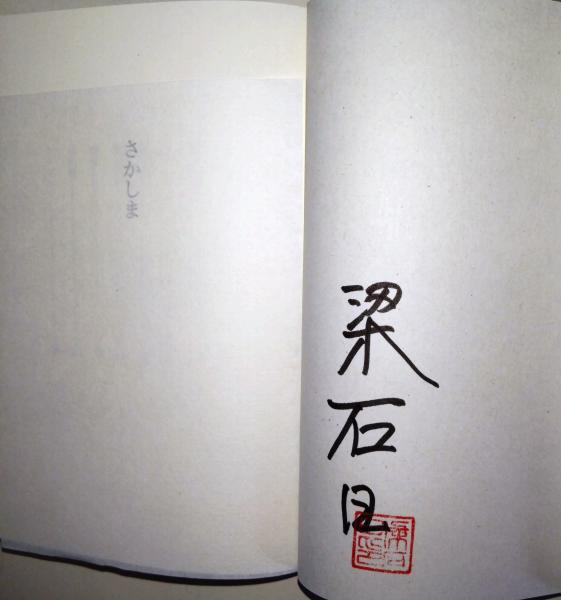 さかしま
梁石日